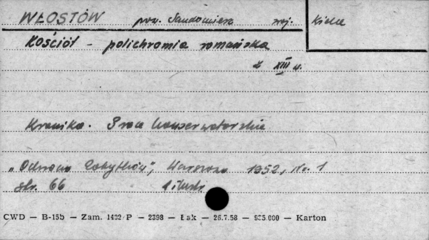 WŁOSTÓW pow. Sandomierz woj. Kielce
Kościół - polichromia romańska
z XIII w.
Kronika. Prace konserwatorskie
„Ochrona Zabytków”, Warszawa 1952, Nr. 1
str. 66 1 ilustr.
CWD — B-15b — Zam. 1422 P — 2398 — Łak — 26.7.58 — 535 000 — Karton